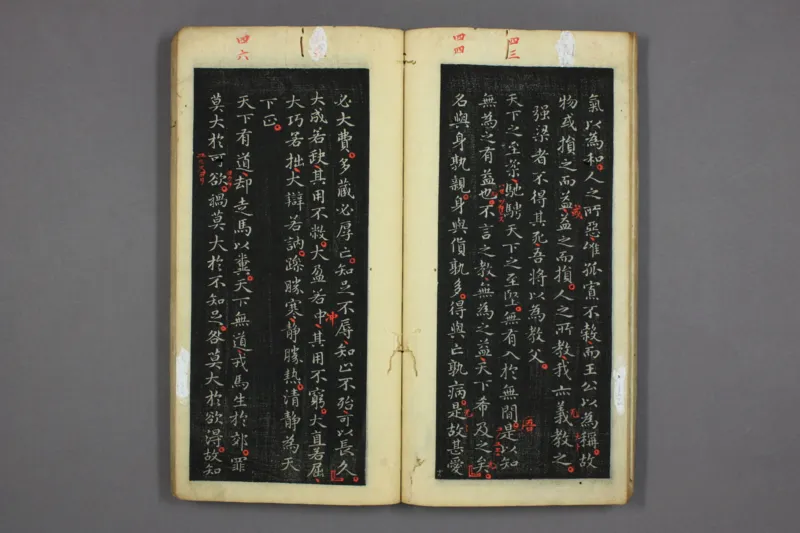 四三
四四
氣以為和人之所惡惟孤寡不穀而王公以為稱故
物或損之而益益之而損人之所教我亦義教之
強梁者不得其死吾將以為教父
天下之至柔馳騁天下之至堅無有入於無間是以知
無為之有益也不言之教無為之益天下希及之矣
名與身孰親身與貨孰多得與亡孰病是故甚愛
四六
必大費多藏必厚亡知足不辱知止不殆可以長久
大成若缺其用不敝大盈若中其用不窮大直若屈
沖
大巧若拙大辯若訥躁勝寒靜勝熱清靜為天
下正
天下有道却走馬以糞天下無道戎馬生於郊罪
莫大於可欲禍莫大於不知足咎莫大於欲得故知